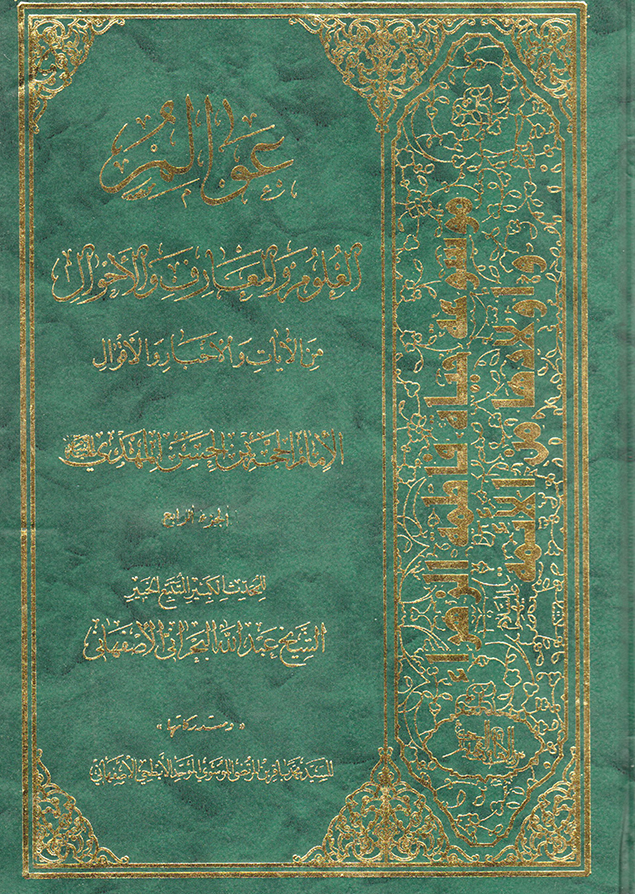 عوالم
العلوم والمعارف والأحوال
من الآيات والأخبار والأقوال
الإمام الحجة بن الحسن المهدي
الجزء الرابع
للمحدث الكبير المتتبع الخبير
الشيخ عبد الله البحراني الأصفهاني
«ومستدركاتها»
للسيد محمد باقر بن المرتضى الموسوي الموحد الأبطحي الأصفهاني
موسوعة حياة فاطمة الزهراء
وأولادها من الأئمة